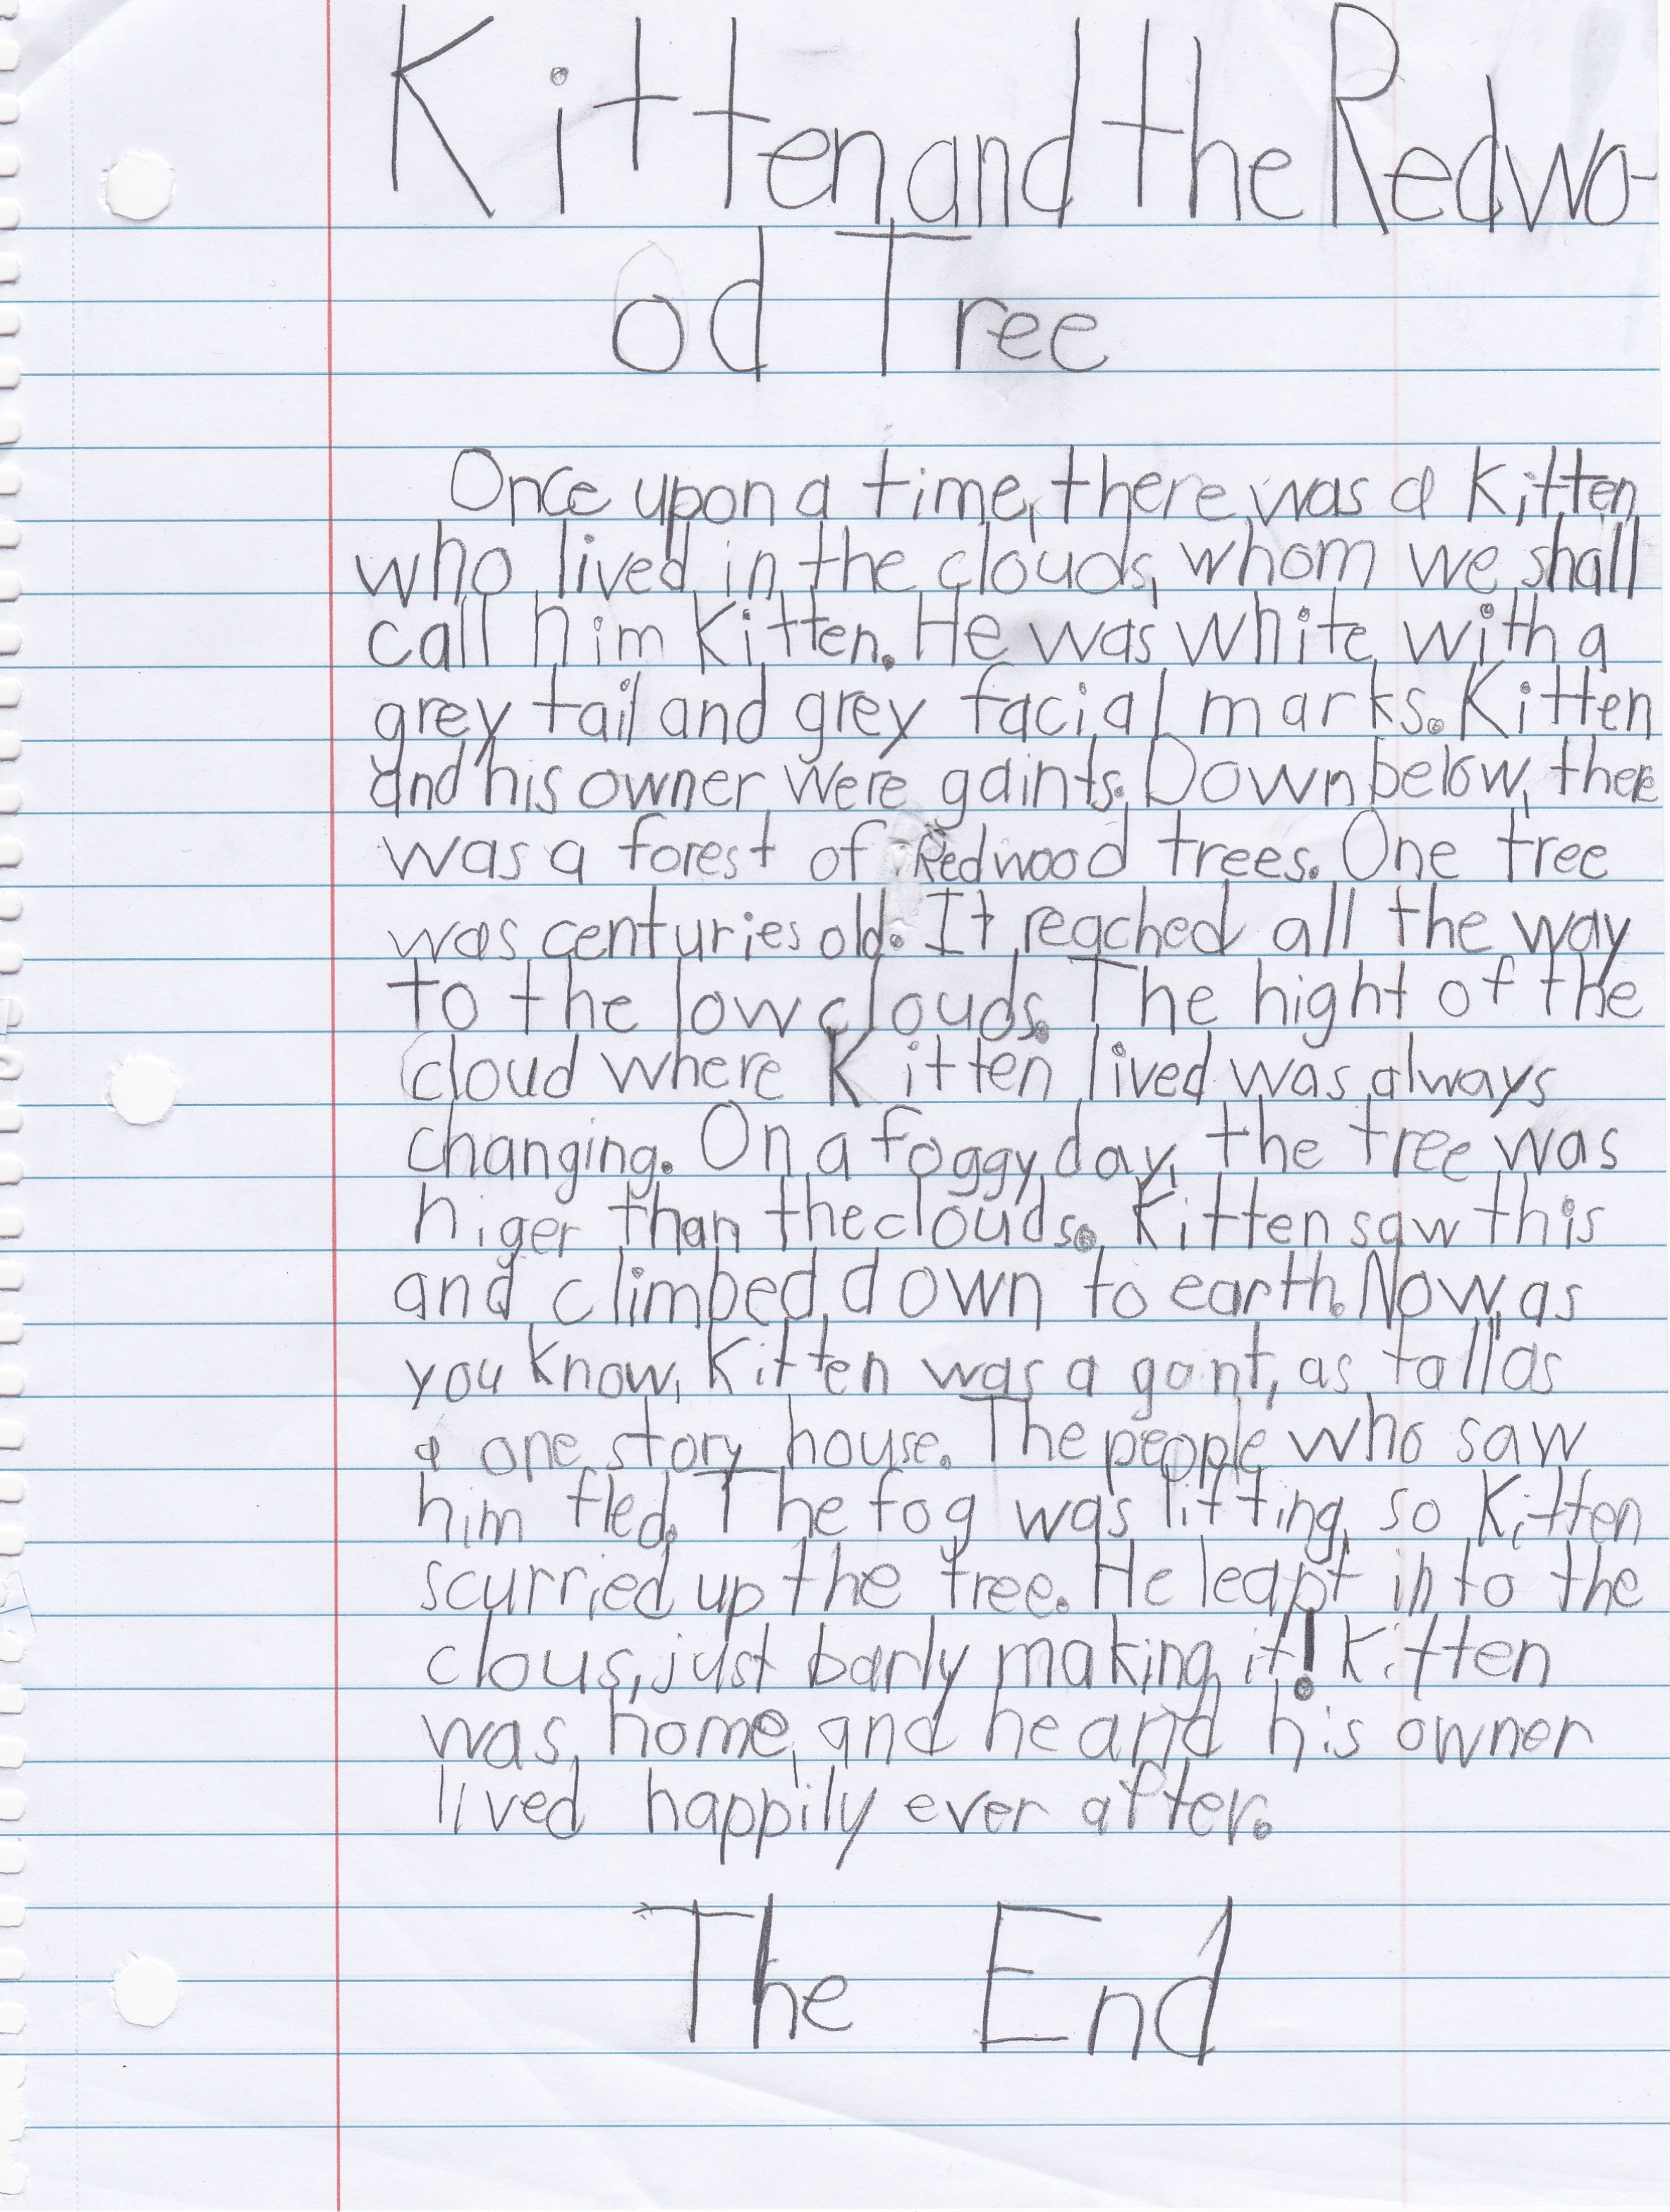 Kitten and the Redwo-
od Tree
Once upon a time, there was a Kitten
who lived in the clouds, whom we shall
call him Kitten. He was white with a
grey tail and grey facial marks. Kitten
and his owner were gaints. Down below, there
was a forest of Redwood trees. One tree
was centuries old. It reached all the way
to the low clouds. The hight of the
cloud where Kitten lived was always
changing. On a foggy day, the tree was
higer than the clouds. Kitten saw this
and climbed down to earth. Now, as
you know, Kitten was a gant, as tall as
a one story house. The people who saw
him fled. The fog was lifting, so Kitten
scurried up the tree. He leapt into the
clous, just barly making it! Kitten
was home, and he and his owner
lived happily ever after.
The End